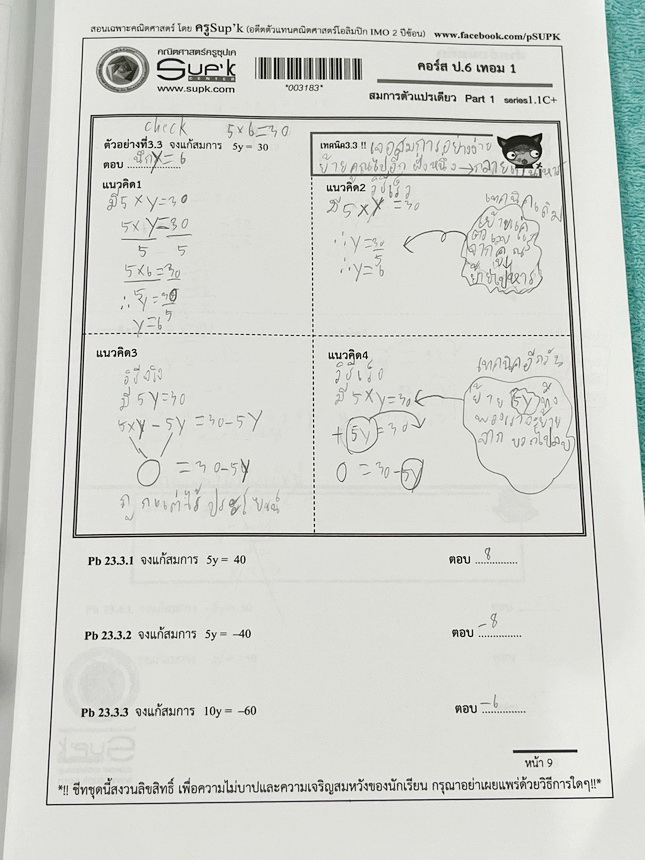 สอนเฉพาะคณิตศาสตร์ โดย ครูSup'k (อดีตตัวแทนคณิตศาสตร์โอลิมปิก IMO 2 ปีซ้อน) www.facebook.com/pSUPK
คณิตศาสตร์ครูซุปเค
Sup'k
CENTER
www.supk.com
*003183*
คอร์ส ป.6 เทอม 1
สมการตัวแปรเดียว Part 1 series1.1C+
check 5×6=30
ตัวอย่างที่3.3 จงแก้สมการ 5y = 30
ตอบ y=6
เทคนิค3.3 !! เจอสมการอย่างง่าย
ย้ายคูณไปอีกฝั่งหนึ่ง→กลายเป็นหาร
แนวคิด1
มี 5×y=30
5×y=30
5 5
5×6=30
∴ 5y=30
y=6
แนวคิด2 วิธีเร็ว
มี 5×y=30
∴ y=30
5
∴ y=6
เทคนิคเดิม
ย้าย
จากคูณ
ย้ายไปหาร
แนวคิด3
วิธีจริง
มี 5y=30
5×y-5y=30-5y
0 =30-5y
ถูกแต่ไร้ประโยชน์
แนวคิด4
วิธีเร็ว
มี 5×y=30
+5y=30
0 =30-5y
เทคนิค
ย้าย 5y ทั้ง
จากบวกไปลบ
Pb 23.3.1 จงแก้สมการ 5y = 40 ตอบ 8
Pb 23.3.2 จงแก้สมการ 5y = –40 ตอบ -8
Pb 23.3.3 จงแก้สมการ 10y = –60 ตอบ -6
หน้า 9
*!! ชีทชุดนี้สงวนลิขสิทธิ์ เพื่อความไม่บาปและความเจริญสมหวังของนักเรียน กรุณาอย่าเผยแพร่ด้วยวิธีการใดๆ!!*